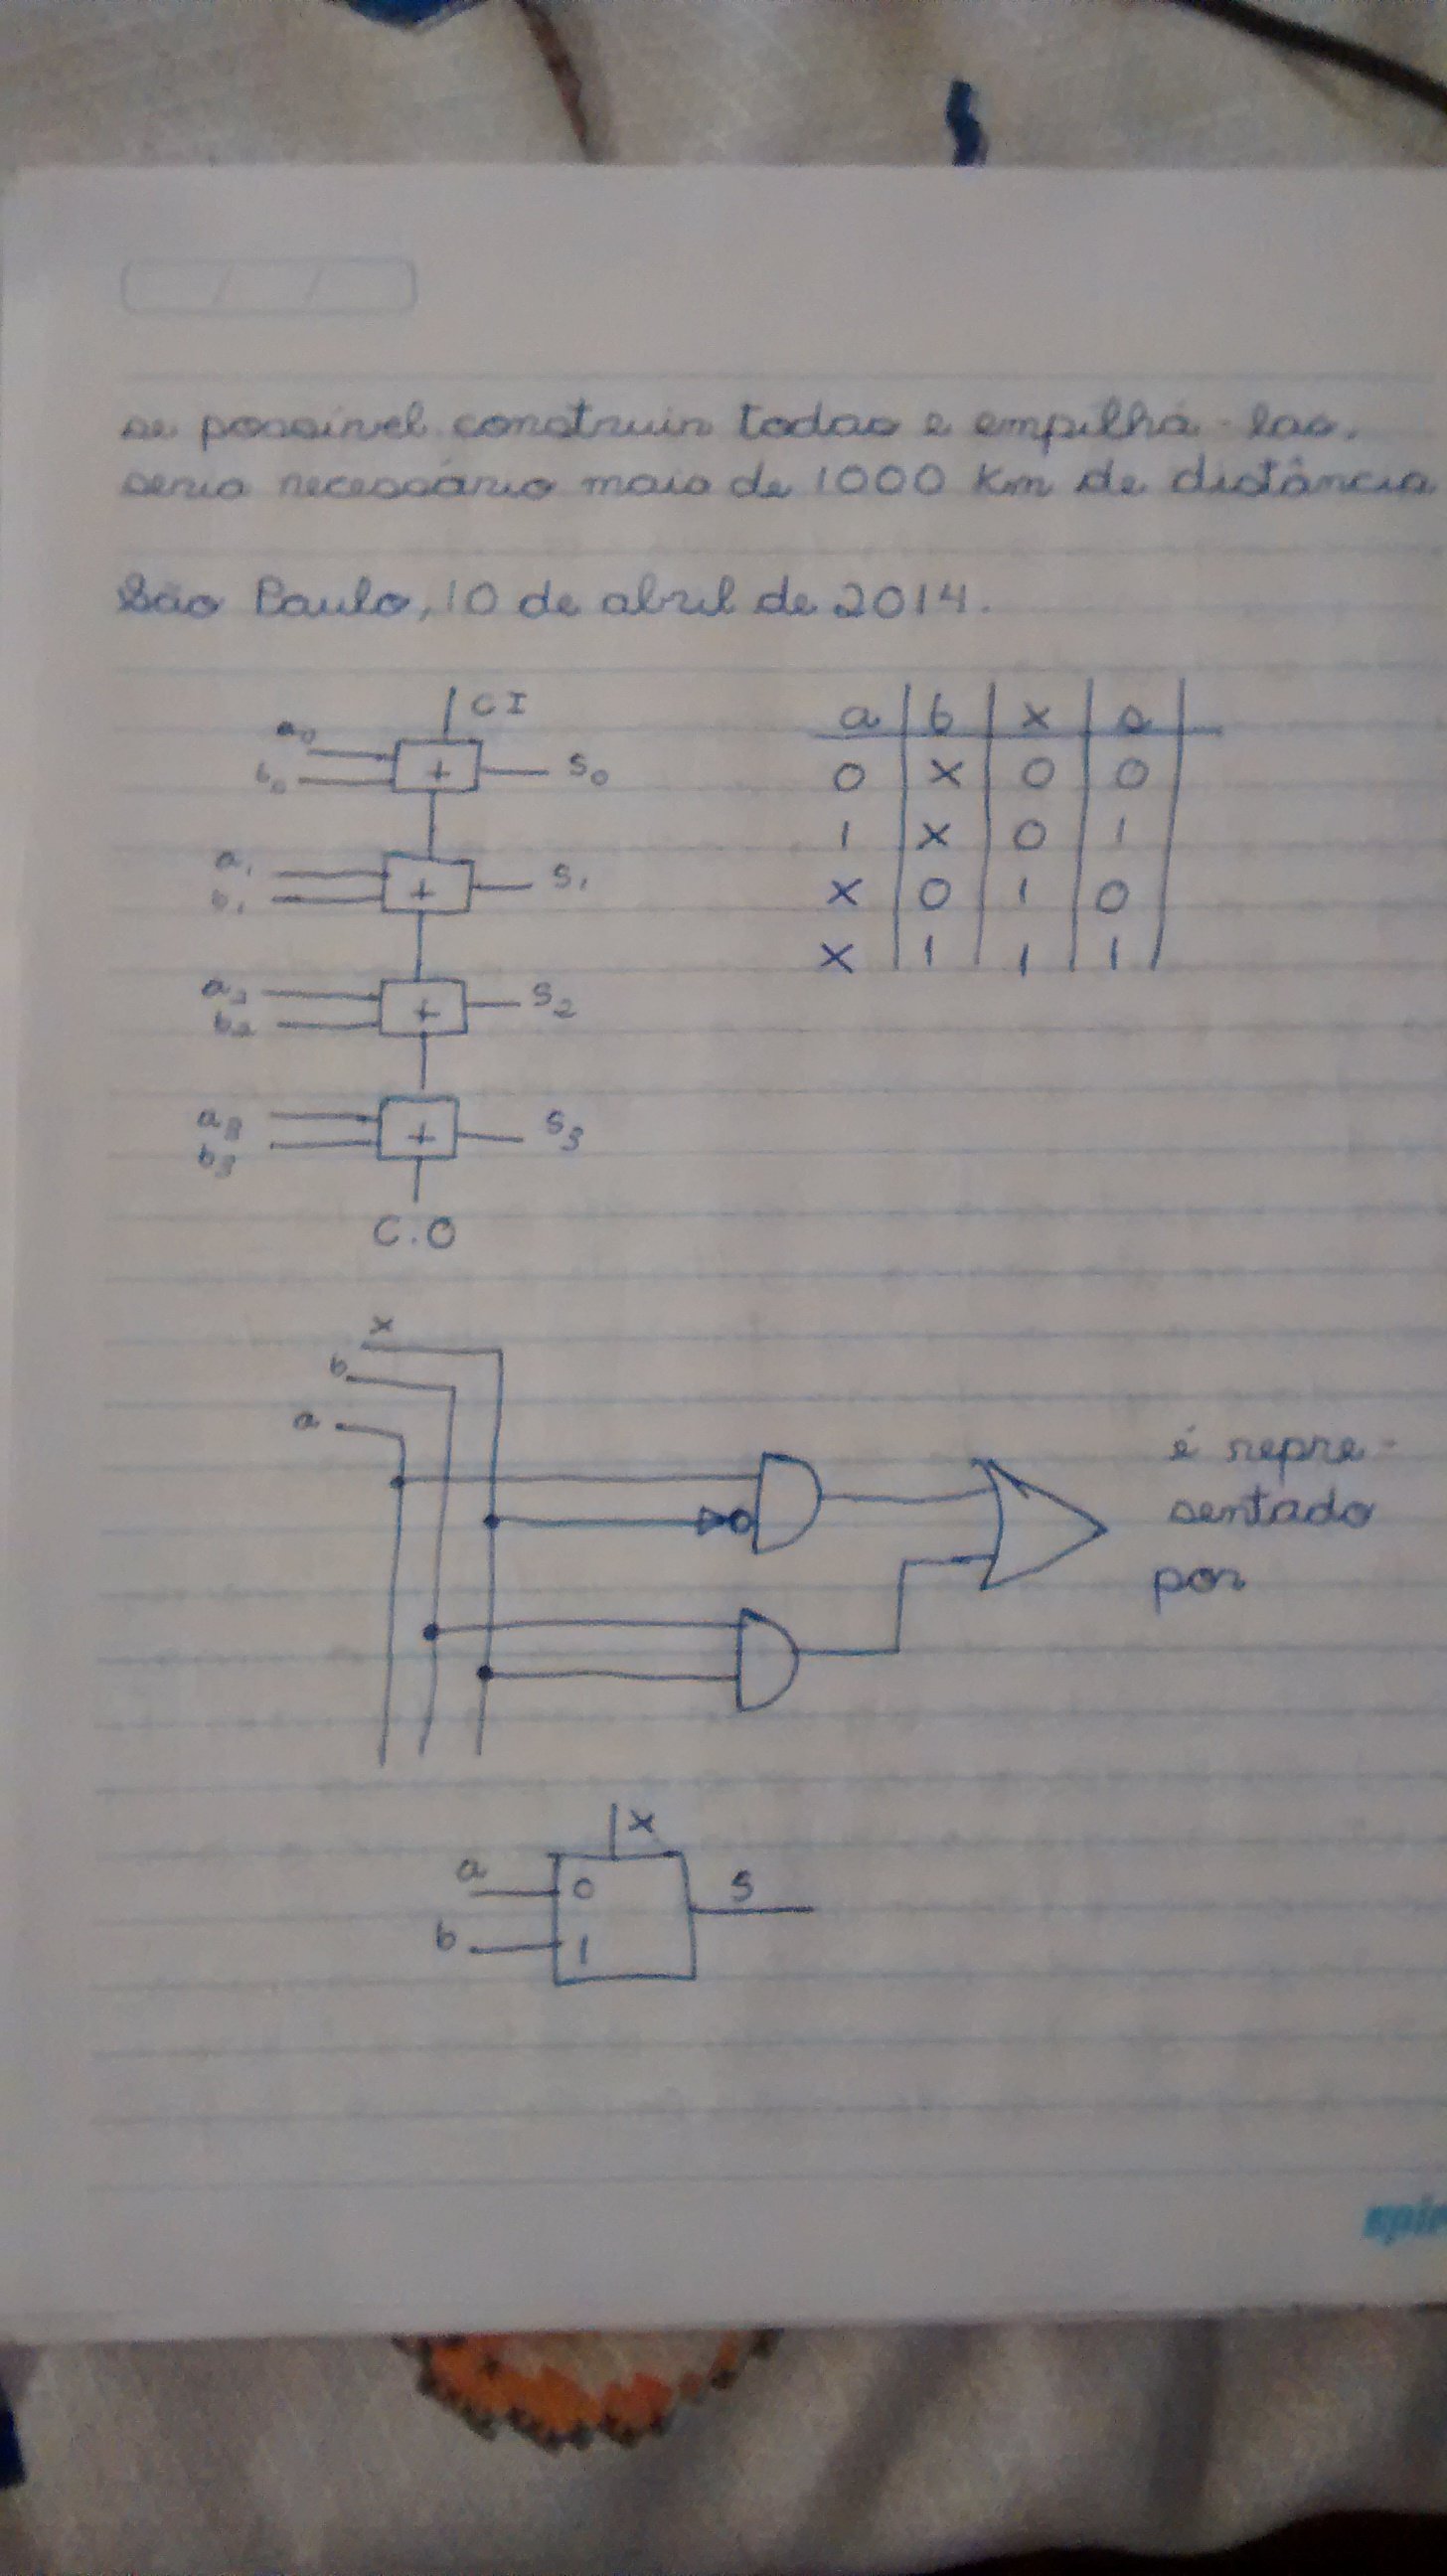 se possível construir todas e empilhá-las,
seria necessário mais de 1000 Km de distância
São Paulo, 10 de abril de 2014.
CI
a0
b0
+
S0
a1
b1
+
S1
a2
b2
+
S2
a3
b3
+
S3
C.O
a b x s
0 x 0 0
1 x 0 1
x 0 1 0
x 1 1 1
x
b
a
é repre-
sentado
por
x
a 0 S
b 1